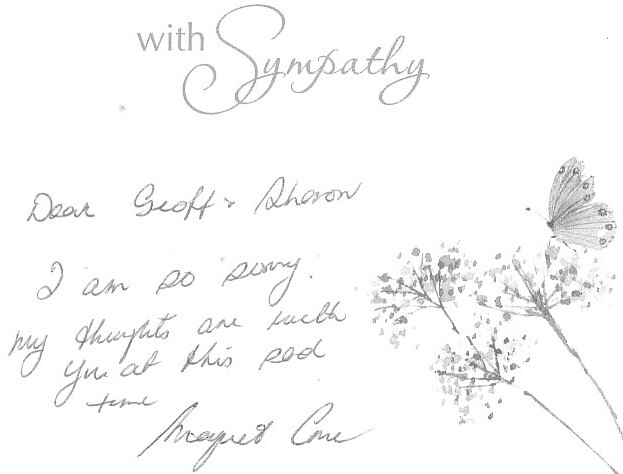 with Sympathy
Dear Geoff + Sharon
I am so sorry.
my thoughts are with
you at this sad
time
Margaret